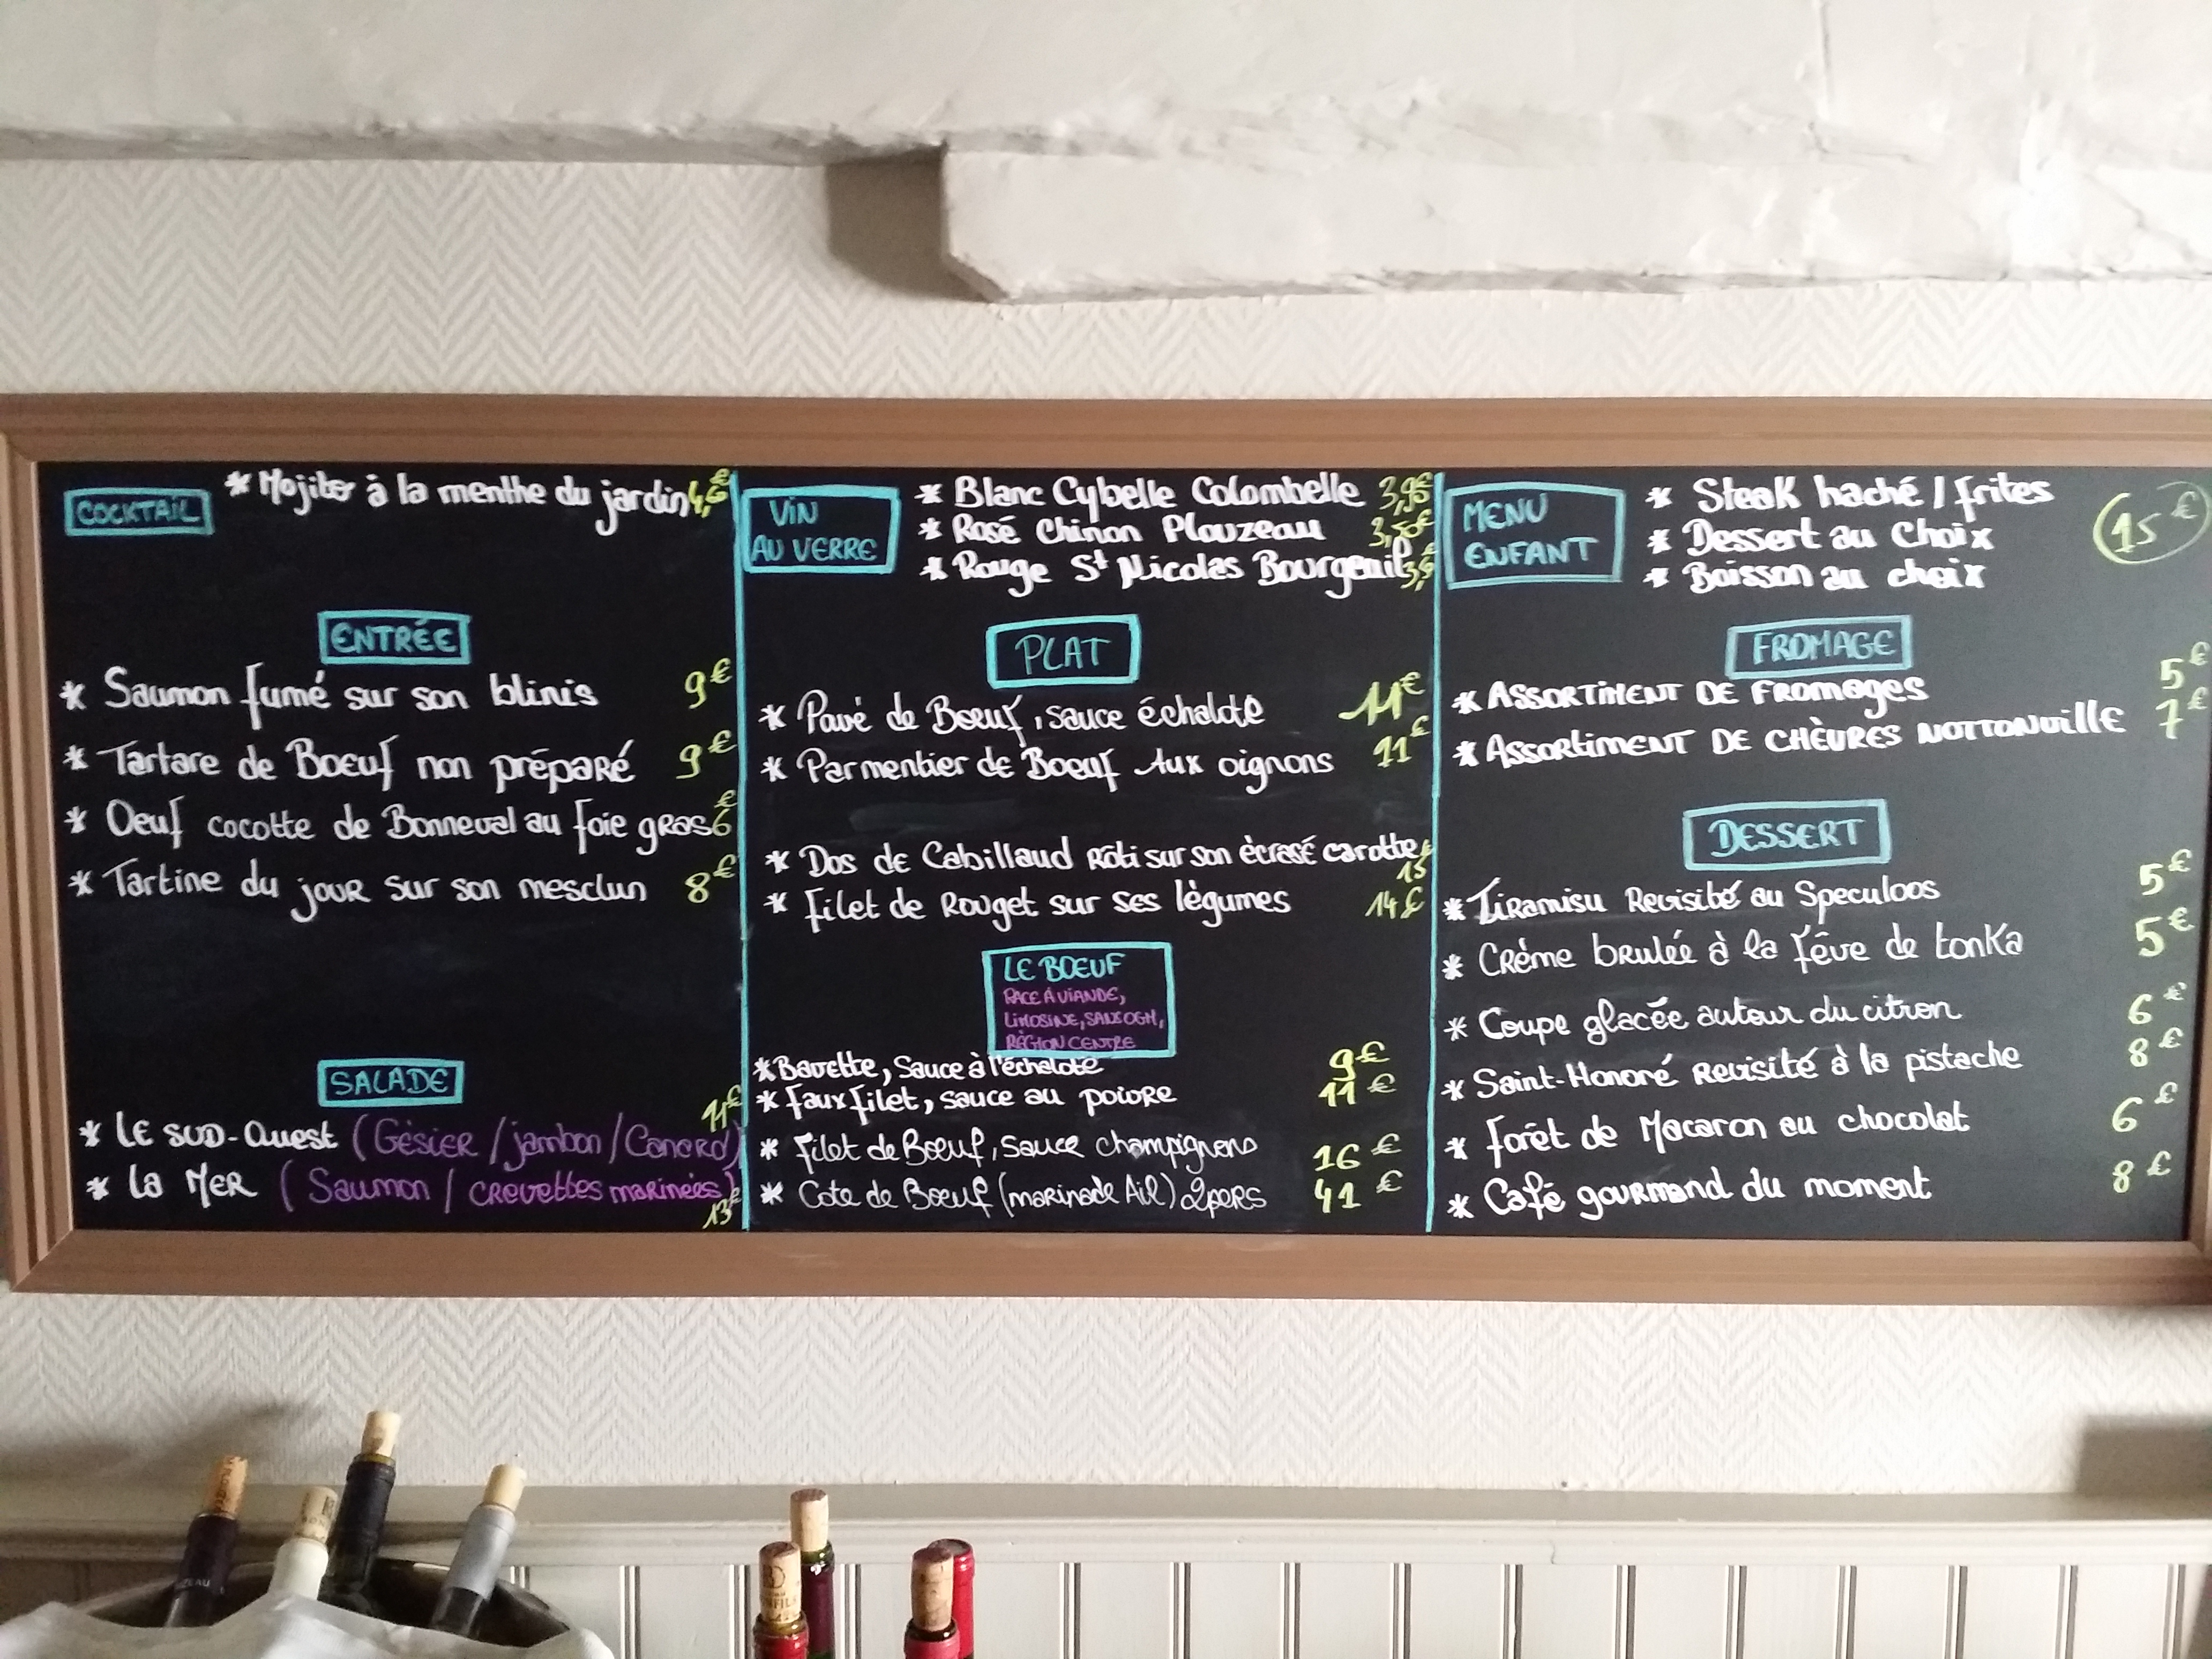 COCKTAIL
* Mojito à la menthe du jardin
ENTRÉE
* Saumon fumé sur son blinis 9€
* Tartare de Boeuf non préparé 9€
* Oeuf cocotte de Bonneval au foie gras 6€
* Tartine du jour sur son mesclun 8€
SALADE
* LE SUD-Ouest (Gésier / jambon / Canard) 11€
* La MER (Saumon / crevettes marinées) 13€
VIN
AU VERRE
* Blanc Cybelle Colombelle 3,95€
* Rosé Chinon Plouzeau 3,50€
* Rouge St Nicolas Bourgeuil
PLAT
* Pavé de Boeuf, sauce échalote 11€
* Parmentier de Boeuf Aux oignons 11€
* Dos de Cabillaud Rôti sur son écrasé carotte 15€
* Filet de Rouget sur ses légumes 14€
LE BOEUF
RACE À VIANDE,
LIMOSINE, SANS OGM,
RÉGION CENTRE
* Bavette, Sauce à l'échalote 9€
* Faux filet, sauce au poivre 11€
* Filet de Boeuf, sauce champignons 16€
* Cote de Boeuf (marinade Ail) 2pers 41€
MENU
ENFANT
* Steak haché / frites
* Dessert au choix
* Boisson au choix
15€
FROMAGE
* ASSORTIMENT DE FROMAGES 5€
* ASSORTIMENT DE CHÈVRES NOTTONVILLE 7€
DESSERT
* Tiramisu Revisité au Speculoos 5€
* Crème brulée à la fêve de tonka 5€
* Coupe glacée autour du citron 6€
* Saint-Honoré Revisité à la pistache 8€
* Forêt de Macaron au chocolat 6€
* Café gourmand du moment 8€